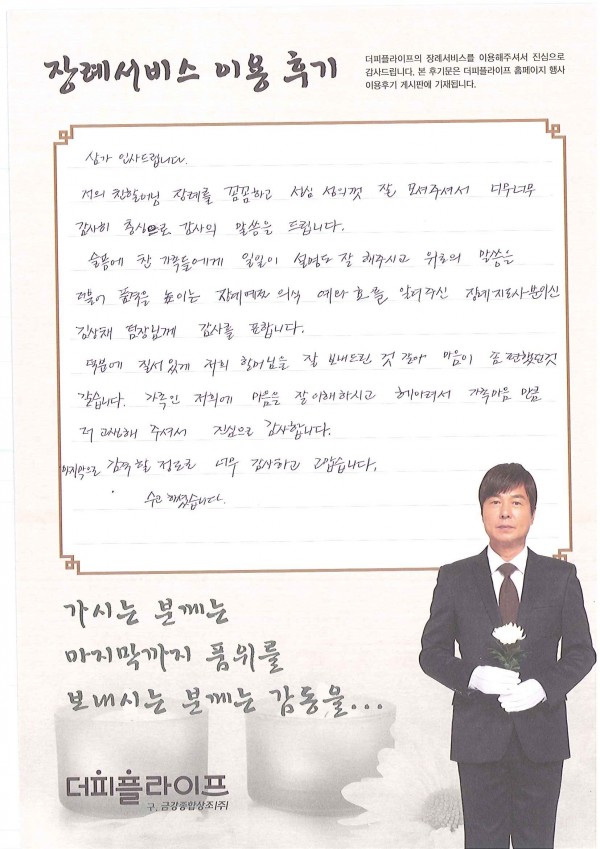 장례서비스 이용 후기
더피플라이프의 장례서비스를 이용해주셔서 진심으로
감사드립니다. 본 후기문은 더피플라이프 홈페이지 행사
이용후기 게시판에 기재됩니다.
삼가 인사드립니다.
저의 친할머님 장례를 꼼꼼하고 성심 성의껏 잘 모셔주셔서 너무너무
감사히 충심으로 감사의 말씀을 드립니다.
슬픔에 찬 가족들에게 일일이 설명도 잘 해주시고 위로의 말씀을
더불어 품격을 높이는 장례예전 의식 예와 효를 알려주신 장례지도사분이신
김상채 팀장님께 감사를 표합니다.
덕분에 질서있게 저희 할머님을 잘 보내드린 것 같아 마음이 좀 편했던것
같습니다. 가족인 저희에 마음을 잘 이해하시고 헤아려서 가족마음 만큼
더 해 주셔서 진심으로 감사합니다.
마지막으로 감동할 정도로 너무 감사하고 고맙습니다.
수고 하셨습니다.
가시는 분께는
마지막까지 품위를
보내시는 분께는 감동을...
더피플라이프
구. 금강종합상조(주)